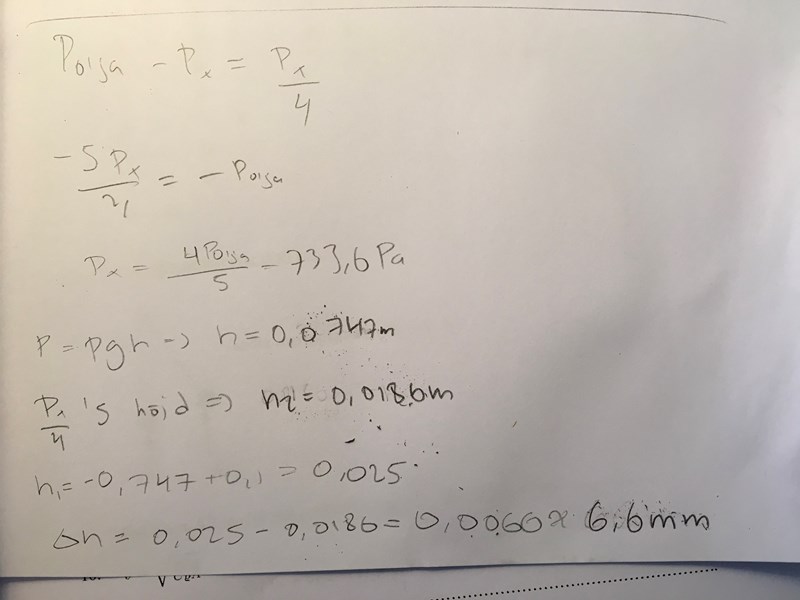 Polja - Px = Px/4
-5Px/4 = -Polja
Px = 4Polja/5 = 733,6 Pa
P = ρgh -> h = 0,0747m
Px/4 's höjd => h2 = 0,0186m
h1 = -0,747 + 0,1 = 0,025
Δh = 0,025 - 0,0186 = 0,0060 ≈ 6,6mm